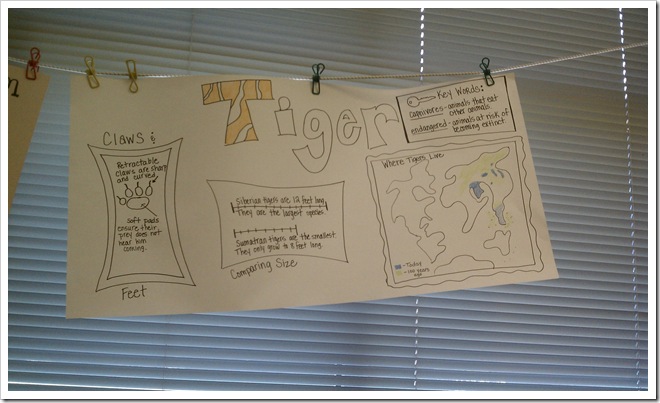 Tiger
Claws &
Retractable
claws are sharp
and curved.
Soft pads
ensure their
prey does not
hear him
coming.
Feet
Siberian tigers are 12 feet long.
They are the largest species.
Sumatran tigers are the smallest.
They only grow to 8 feet long.
Comparing Size
Key Words:
carnivores - animals that eat
other animals.
endangered - animals at risk of
becoming extinct
Where Tigers Live
- Today
- 100 years
ago